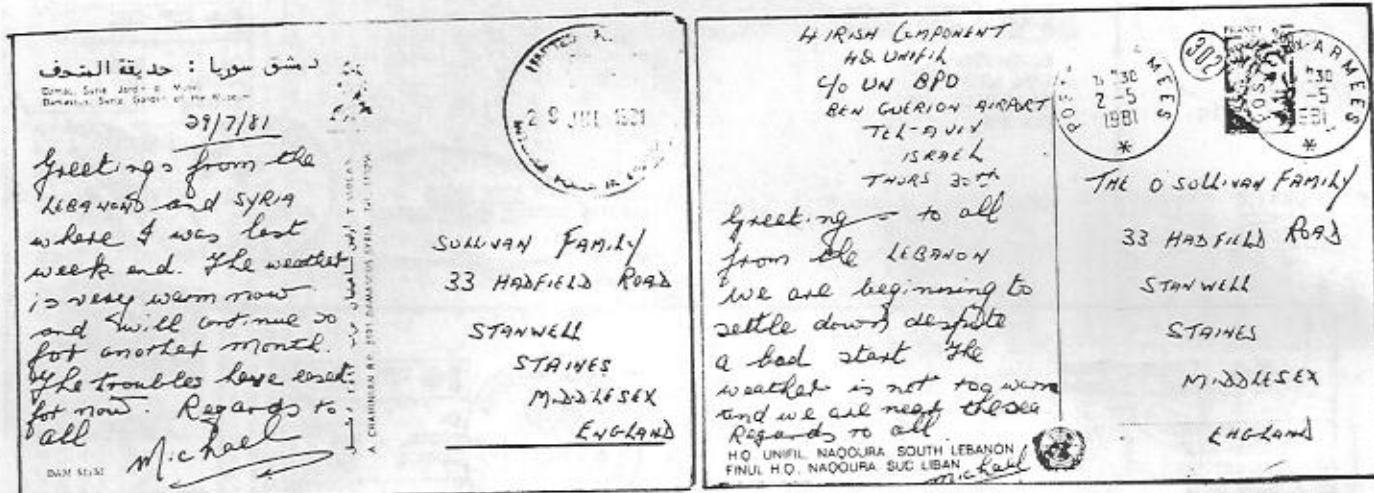 دمشق سوريا : حديقة المتحف
Damas, Syrie Jardin du Musée
Damascus, Syria Garden of the Museum
29/7/81
Greetings from the
LEBANON and SYRIA
where I was last
week end. The weather
is very warm now
and will continue so
for another month.
The troubles have eased
for now. Regards to
all
Michael
DAM
A. CHAHINIAN DAMASCUS SYRIA
29 JUL 1981
SULLIVAN FAMILY
33 HADFIELD ROAD
STANWELL
STAINES
MIDDLESEX
ENGLAND
IRISH COMPONENT
HQ UNIFIL
C/O UN BPO
BEN GUERION AIRPORT
TEL-AVIV
ISRAEL
THURS 30th
Greetings to all
from the LEBANON
we are beginning to
settle down despite
a bad start The
weather is not too warm
and we are near the sea
Regards to all
H.Q. UNIFIL NAQOURA SOUTH LEBANON
FINUL H.Q. NAQOURA SUD LIBAN
Michael
302
2-5
1981
ARMEES
-5
1981
THE O'SULLIVAN FAMILY
33 HADFIELD ROAD
STANWELL
STAINES
MIDDLESEX
ENGLAND